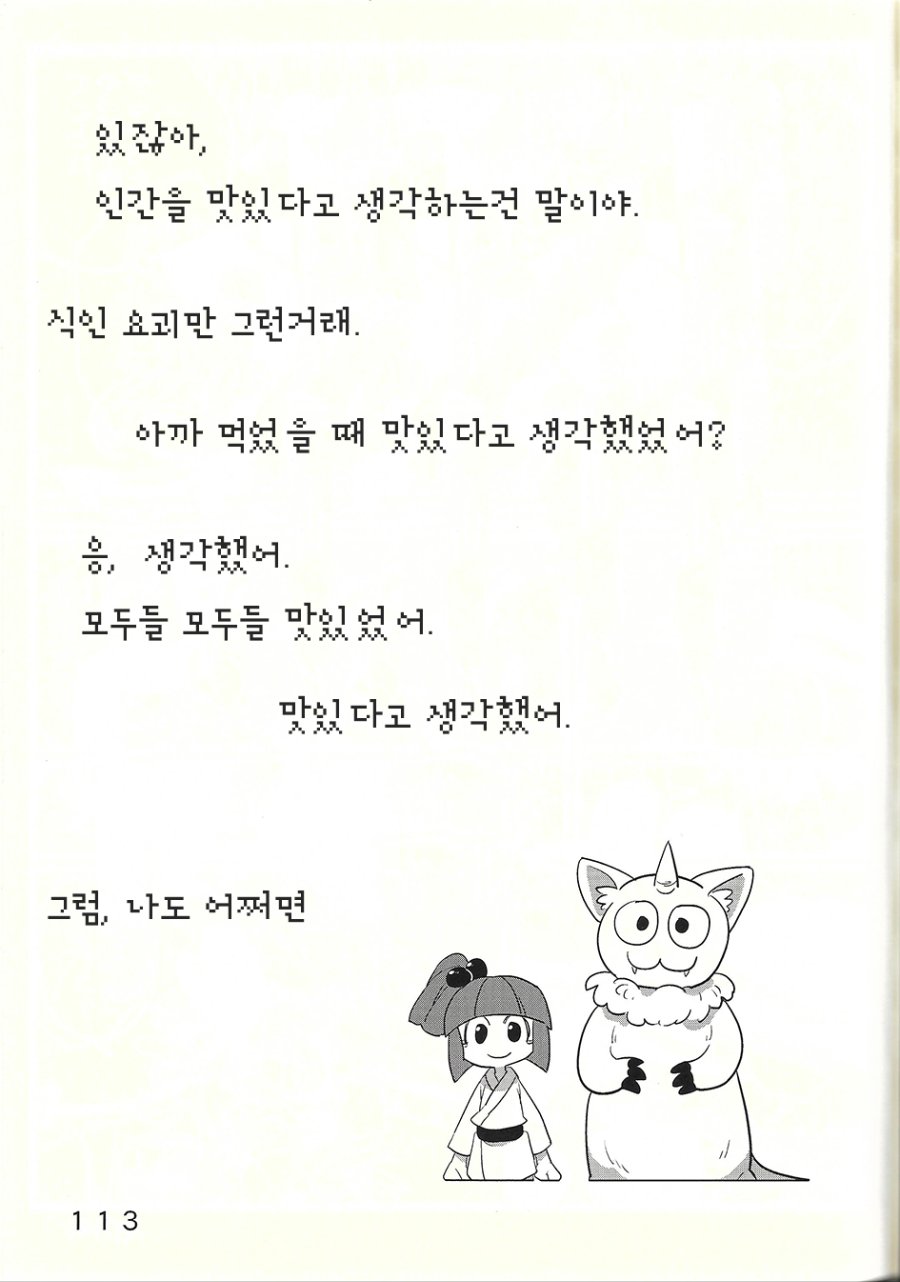 있잖아,
인간을 맛있다고 생각하는건 말이야.
식인 요괴만 그런거래.
아까 먹었을 때 맛있다고 생각했었어?
응, 생각했어.
모두들 모두들 맛있었어.
맛있다고 생각했어.
그럼, 나도 어쩌면
113